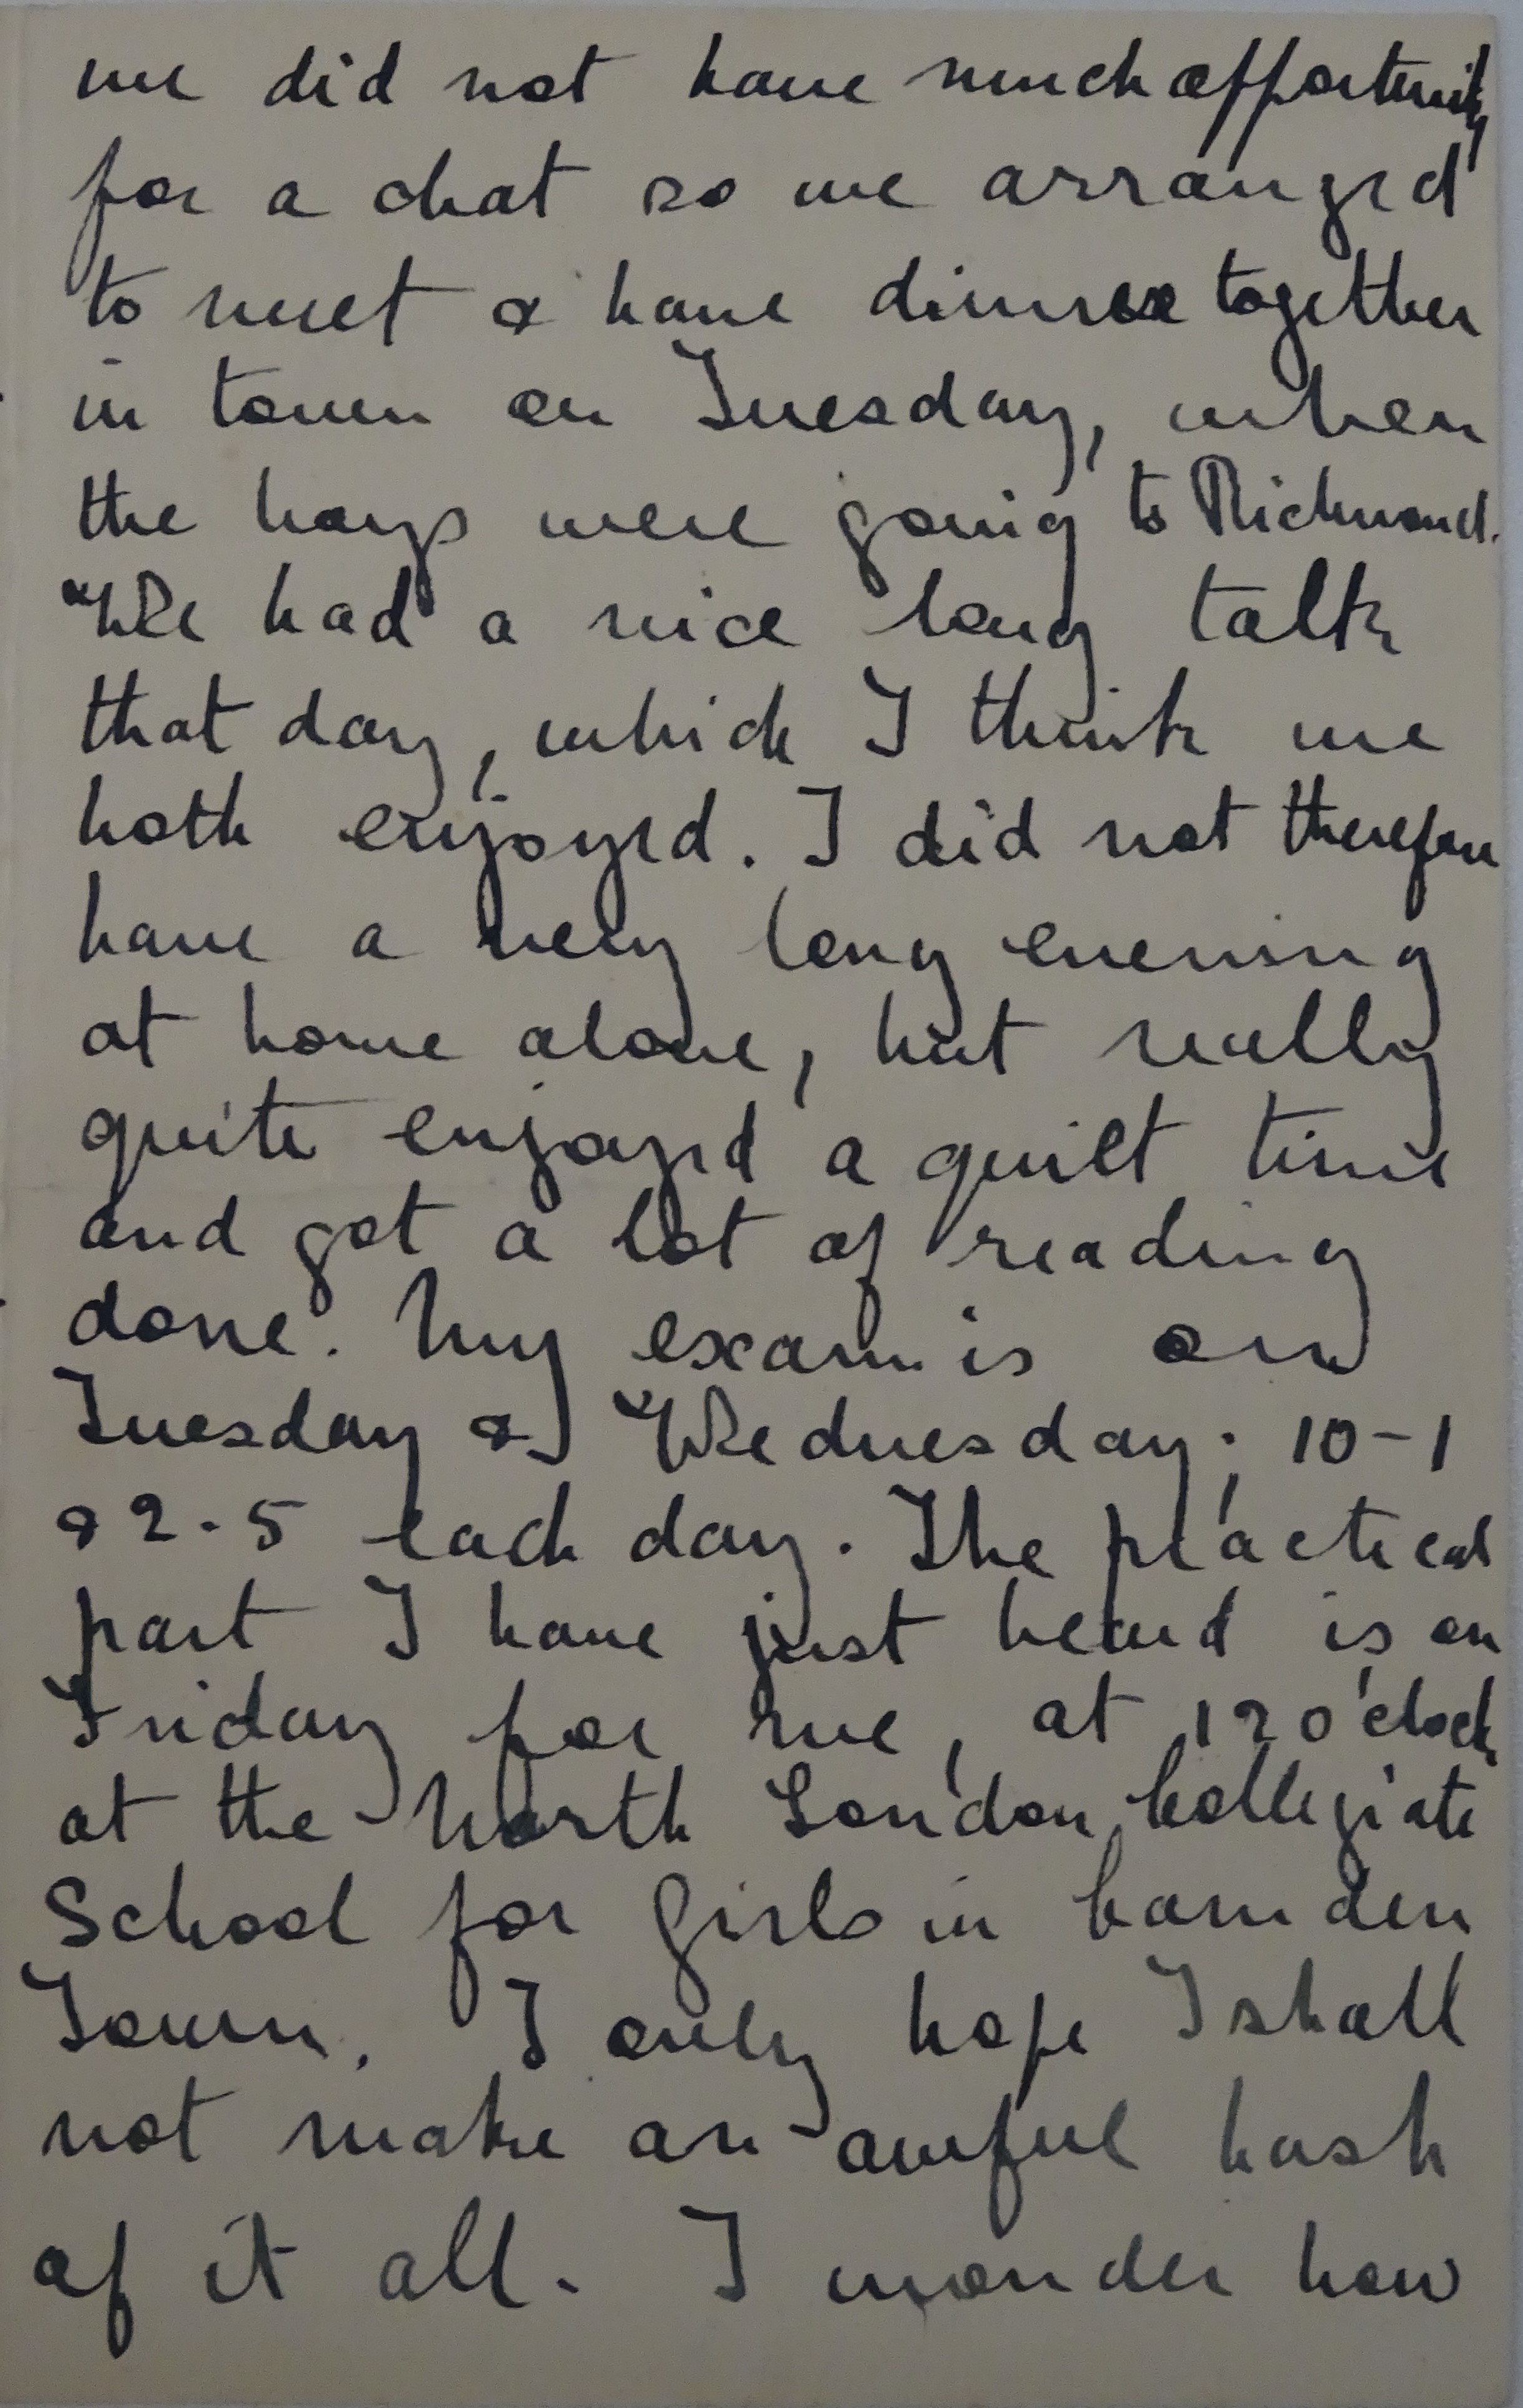 we did not have much opportunity
for a chat so we arranged
to meet & have dinner together
in town on Tuesday, when
the boys were going to Richmond.
We had a nice long talk
that day, which I think we
both enjoyed. I did not therefore
have a very long evening
at home alone, but really
quite enjoyed a quiet time
and got a lot of reading
done. My exam is on
Tuesday & Wednesday; 10-1
& 2-5 each day. The practical
part I have just heard is on
Friday for me, at 12 o'clock
at the North London Collegiate
School for Girls in Camden
Town. I only hope I shall
not make an awful hash
of it all. I wonder how